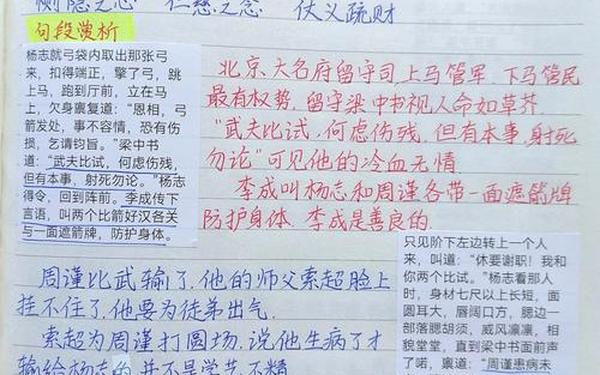 恻隐之心 仁慈之念 仗义疏财
句段赏析
杨志就弓袋内取出那张弓
来，扣得端正，擎了弓，跳
上马，跑到厅前，立在马
上，欠身禀复道：“恩相，弓
箭发处，事不容情，恐有伤
损，乞请钧旨。”梁中书
道：“武夫比试，何虑伤残，
但有本事，射死勿论。”杨志
得令，回到阵前。李成传下
言语，叫两个比箭好汉各关
与一面遮箭牌，防护身体。
北京大名府留守司上马管军，下马管民
最有权势，留守梁中书视人命如草芥，
“武夫比试，何虑伤残，但有本事，射死
勿论”可见他的冷血无情
李成叫杨志和周谨各带一面遮箭牌
防护身体，李成是善良的.
周谨比武输了，他的师父索超脸上
挂不住了，他要为徒弟出气
索超为周谨打圆场，说他生病了才
输给杨志的，并不是学艺不精
只见阶下左边转上一个人
来，叫道：“休要谢职！我和
你两个比试。”杨志看那人
时，身材七尺以上长短，面
圆耳大，唇阔口方，腮边一
部落腮胡须，威风凛凛，相
貌堂堂，直到梁中书面前声
了喏，禀道：“周谨患病未